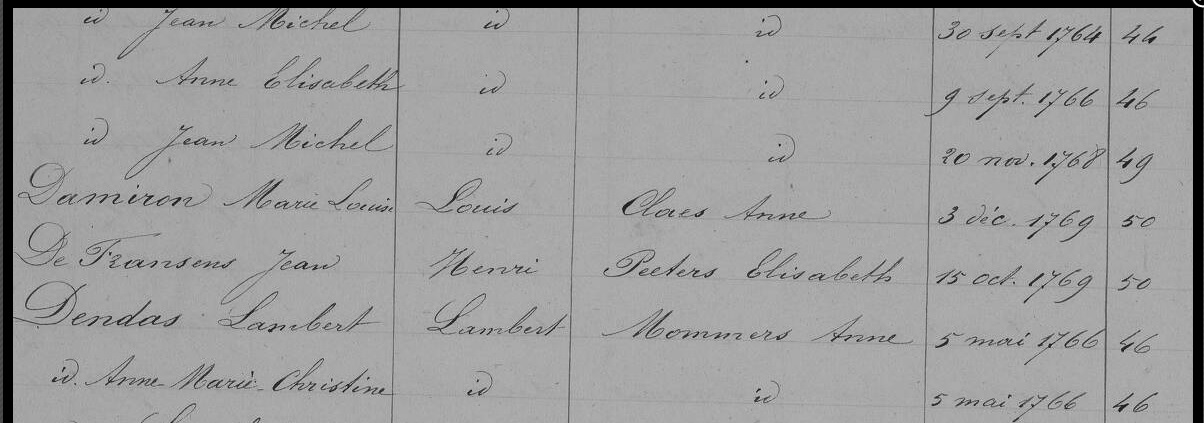 id Jean Michel id id 30 sept 1764 44
id. Anne Elisabeth id id 9 sept. 1766 46
id Jean Michel id id 20 nov. 1768 49
Damiron Marie Louise Louis Claes Anne 3 déc. 1769 50
De Fransens Jean Henri Peeters Elisabeth 15 oct. 1769 50
Dendas Lambert Lambert Mommers Anne 5 mai 1766 46
id. Anne-Marie-Christine id id 5 mai 1766 46